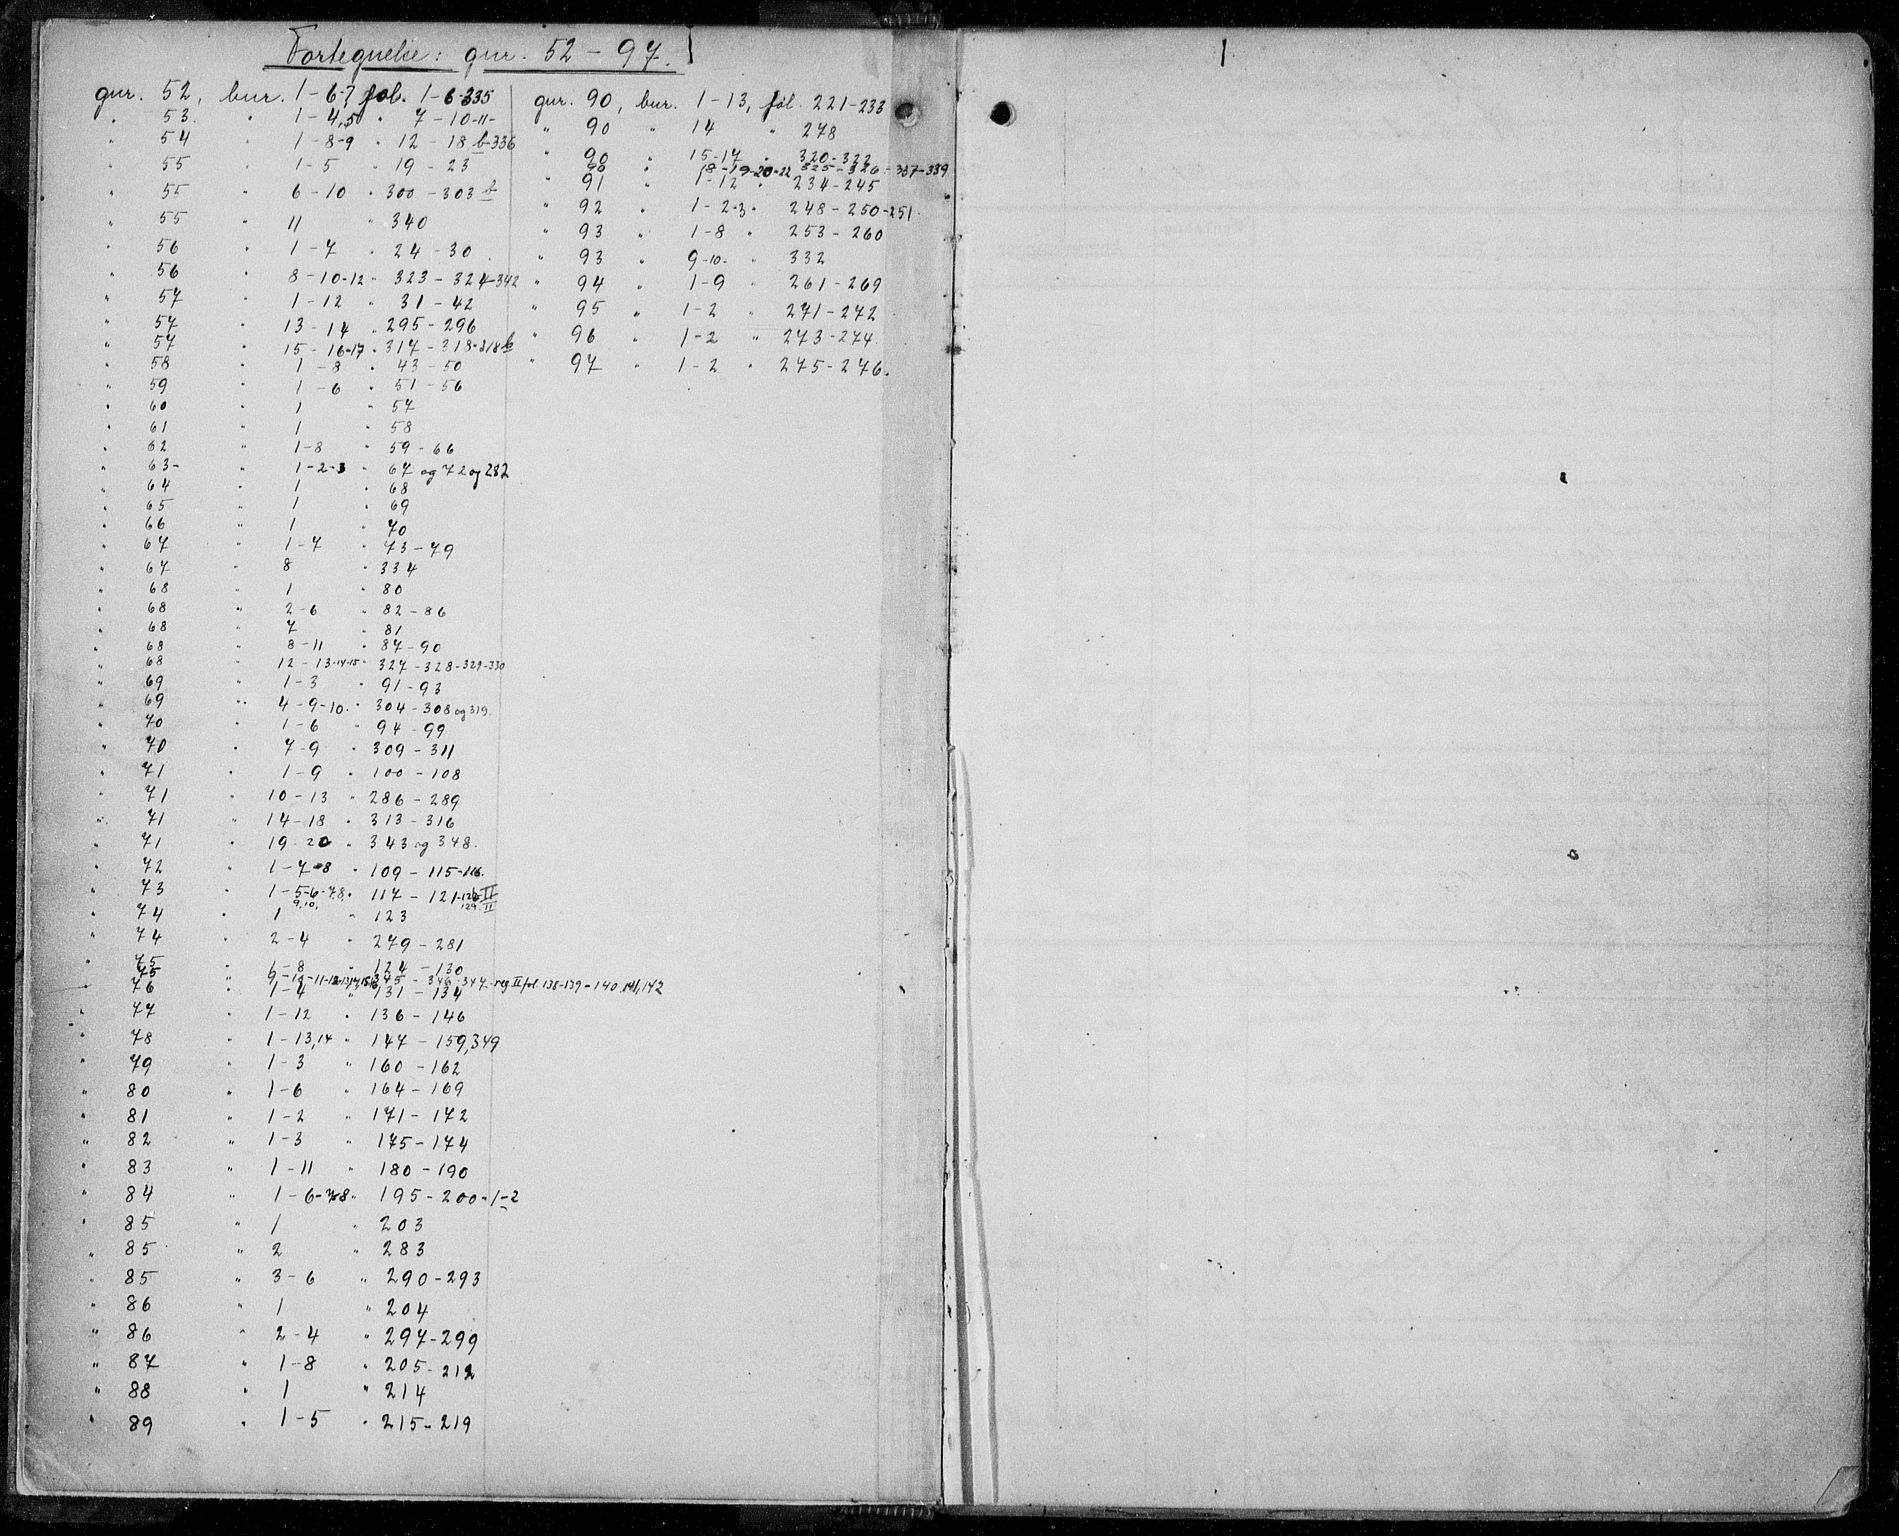 Fortegnelse: gnr. 52 - 97.
gnr. 52, bnr. 1 - 6-7, fol. 1 - 6-335
" 53. " 1 - 4,5 " 7 - 10-11-
" 54 " 1 - 8-9 " 12 - 18 b-336
" 55 " 1 - 5 " 19 - 23
" 55 " 6 - 10 " 300 - 303 b
" 55 " 11 " 340
" 56 " 1 - 7 " 24 - 30
" 56 " 8 - 10-12 " 323 - 324-342
" 57 " 1 - 12 " 31 - 42
" 57 " 13 - 14 " 295 - 296
" 57 " 15 - 16-17 " 317 - 318-318 b
" 58 " 1 - 8 " 43 - 50
" 59 " 1 - 6 " 51 - 56
" 60 " 1 " 57
" 61 " 1 " 58
" 62 " 1 - 8 " 59 - 66
" 63- " 1 - 2-3 " 67 og 72 og 282
" 64 " 1 " 68
" 65 " 1 " 69
" 66 " 1 " 70
" 67 " 1 - 7 " 73 - 79
" 67 " 8 " 334
" 68 " 1 " 80
" 68 " 2 - 6 " 82 - 86
" 68 " 7 " 81
" 68 " 8 - 11 " 87 - 90
" 68 " 12 - 13-14-15 " 327 - 328-329-330
" 69 " 1 - 3 " 91 - 93
" 69 " 4 - 9-10. " 304 - 308 og 319.
" 70 " 1 - 6 " 94 - 99
" 70 " 7 - 9 " 309 - 311
" 71 " 1 - 9 " 100 - 108
" 71 " 10 - 13 " 286 - 289
" 71 " 14 - 18 " 313 - 316
" 71 " 19. 20 " 343 og 348.
" 72 " 1 - 7-8 " 109 - 115-116.
" 73 " 1 - 5-6-7,8, " 117 - 121- II
9,10, 129 II
" 74 " 1 " 123
" 74 " 2 - 4 " 279 - 281
" 75 " 1 - 8 " 124 - 130
" 75 " 9 - 10-11-12-13,14,15,16 345 - 346-347- reg II fol 138-139-140,141,142
" 76 " 1 - 4 " 131 - 134
" 77 " 1 - 12 " 136 - 146
" 78 " 1 - 13,14 " 147 - 159,349
" 79 " 1 - 3 " 160 - 162
" 80 " 1 - 6 " 164 - 169
" 81 " 1 - 2 " 171 - 172
" 82 " 1 - 3 " 175 - 174
" 83 " 1 - 11 " 180 - 190
" 84 " 1 - 6-7-8 " 195 - 200-1-2
" 85 " 1 " 203
" 85 " 2 " 283
" 85 " 3 - 6 " 290 - 293
" 86 " 1 " 204
" 86 " 2 - 4 " 297 - 299
" 87 " 1 - 8 " 205 - 212
" 88 " 1 " 214
" 89 " 1 - 5 " 215 - 219
gnr. 90, bnr. 1 - 13, fol. 221 - 233
" 90 " 14 " 278
" 90 " 15 - 17 " 320 - 322
" 90 " 18 - 19-20-22 325 - 326 - 337-339
" 91 " 1 - 12 " 234 - 245
" 92 " 1 - 2-3 " 248 - 250-251
" 93 " 1 - 8 " 253 - 260
" 93 " 9-10- " 332
" 94 " 1 - 9 " 261 - 269
" 95 " 1 - 2 " 271 - 272
" 96 " 1 - 2 " 273 - 274.
" 97 " 1 - 2 " 275 - 276.